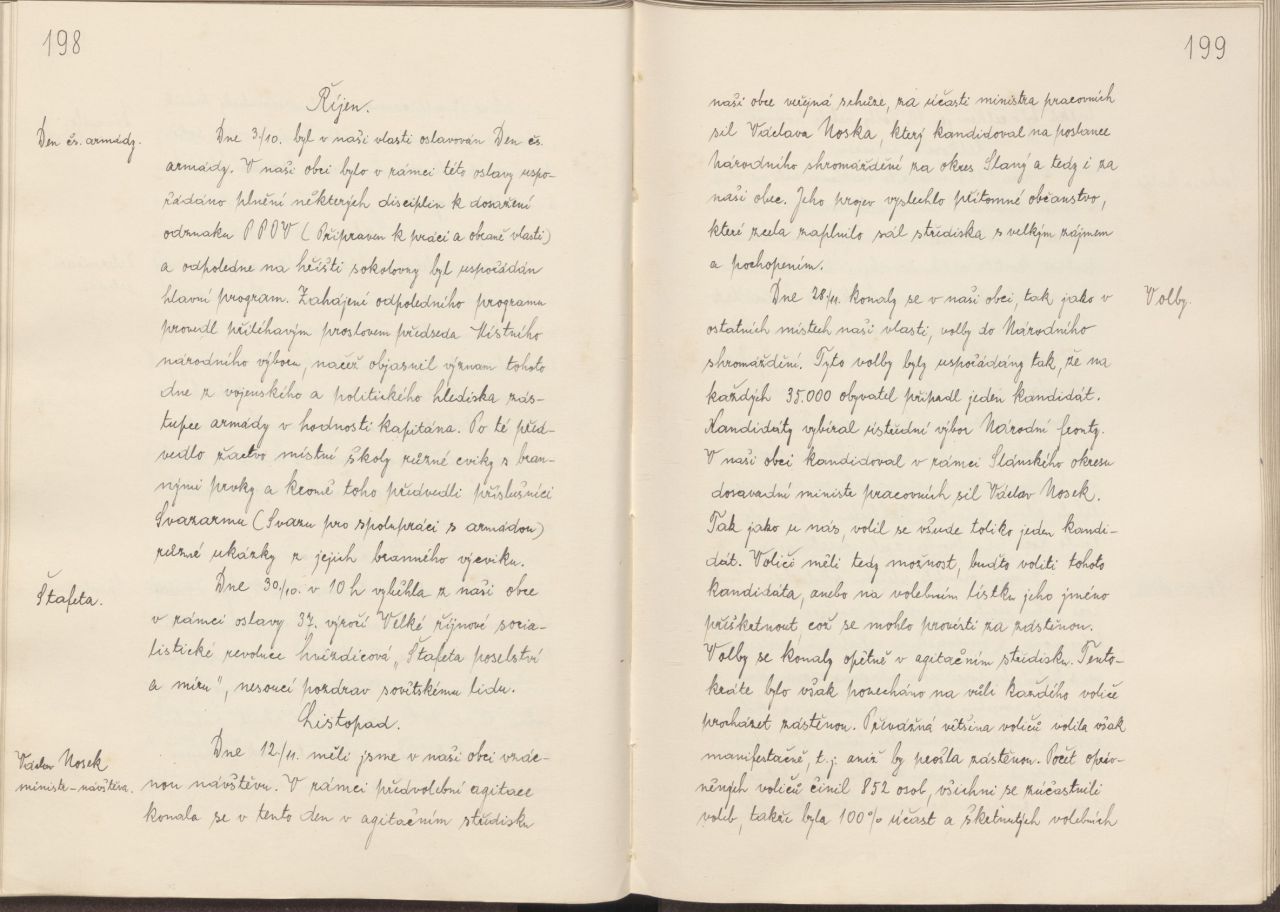 198
Říjen.
Den čs. armády.
Dne 3./10. byl v naší vlasti oslavován Den čs.
armády. V naší obci bylo v rámci této oslavy uspo-
řádáno plnění některých disciplin k dosažení
odznaku PPOV (Připraven k práci a obraně vlasti)
a odpoledne na hřišti sokolovny byl uspořádán
hlavní program. Zahájení odpoledního programu
provedl přiléhavým proslovem předseda Místního
národního výboru, načež objasnil význam tohoto
dne z vojenského a politického hlediska zás-
tupce armády v hodnosti kapitána. Po té před-
vedlo žactvo místní školy různé cviky s bran-
nými prvky a kromě toho předvedli příslušníci
Svazarmu (Svazu pro spolupráci s armádou)
různé ukázky z jejich branného výcviku.
Štafeta.
Dne 30./10. v 10 h vyběhla z naší obce
v rámci oslavy 37. výročí Velké říjnové socia-
listické revoluce hvězdicová „Štafeta poselství
a míru", nesoucí pozdrav sovětskému lidu.
Listopad.
Václav Nosek
ministr-návštěva.
Dne 12./11. měli jsme v naší obci vzác-
nou návštěvu. V rámci předvolební agitace
konala se v tento den v agitačním středisku
199
naší obce veřejná schůze, za účasti ministra pracovních
sil Václava Noska, který kandidoval na poslance
Národního shromáždění za okres Slaný a tedy i za
naši obec. Jeho projev vyslechlo přítomné občanstvo,
které zcela zaplnilo sál střediska s velkým zájmem
a pochopením.
Volby.
Dne 28./11. konaly se v naší obci, tak jako v
ostatních místech naší vlasti, volby do Národního
shromáždění. Tyto volby byly uspořádány tak, že na
každých 35.000 obyvatel připadl jeden kandidát.
Kandidáty vybíral ústřední výbor Národní fronty.
V naší obci kandidoval v rámci Slánského okresu
dosavadní ministr pracovních sil Václav Nosek.
Tak jako u nás, volil se všude toliko jeden kandi-
dát. Voliči měli tedy možnost, buďto voliti tohoto
kandidáta, anebo na volebním lístku jeho jméno
příškrtnout, což se mohlo provésti za zástěnou.
Volby se konaly opětně v agitačním středisku. Tento-
kráte bylo však ponecháno na vůli každého voliče
procházet zástěnou. Převážná většina voličů volila však
manifestačně, t.j. aniž by prošla zástěnou. Počet opráv-
něných voličů činil 852 osob, všichni se zúčastnili
voleb, takže byla 100% účast a škrtnutých volebních